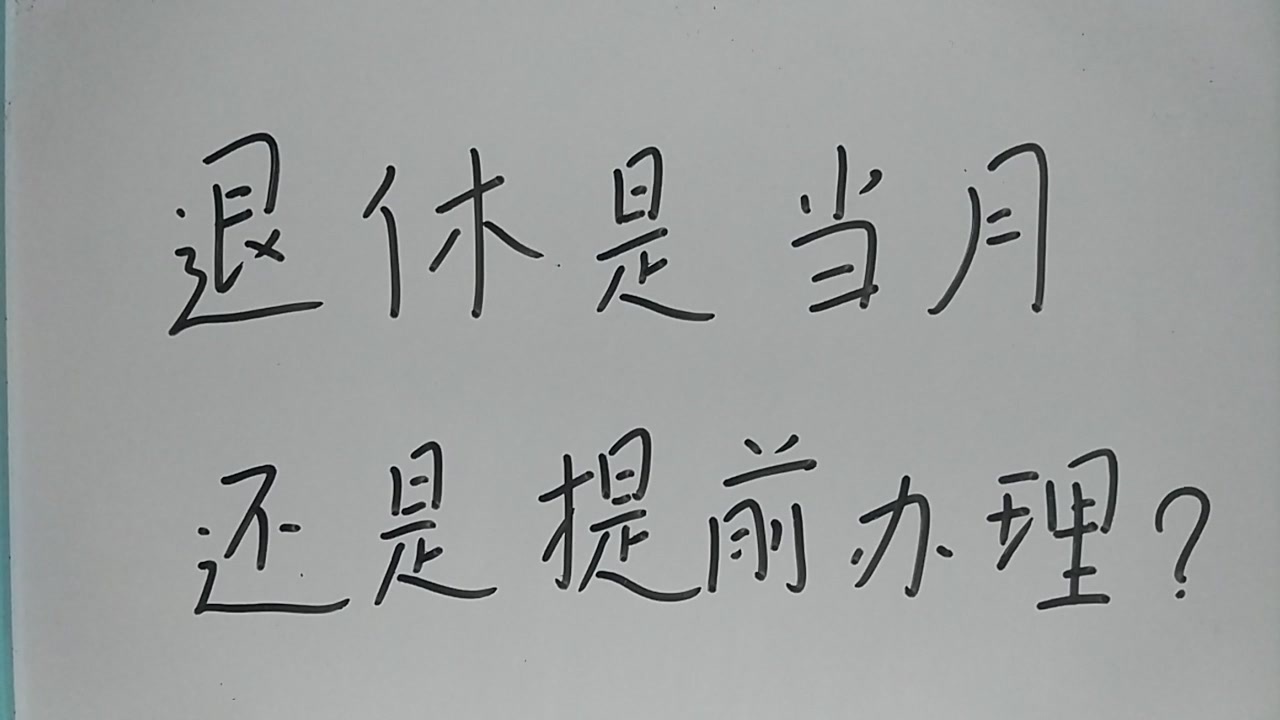 退休是当月
还是提前办理?